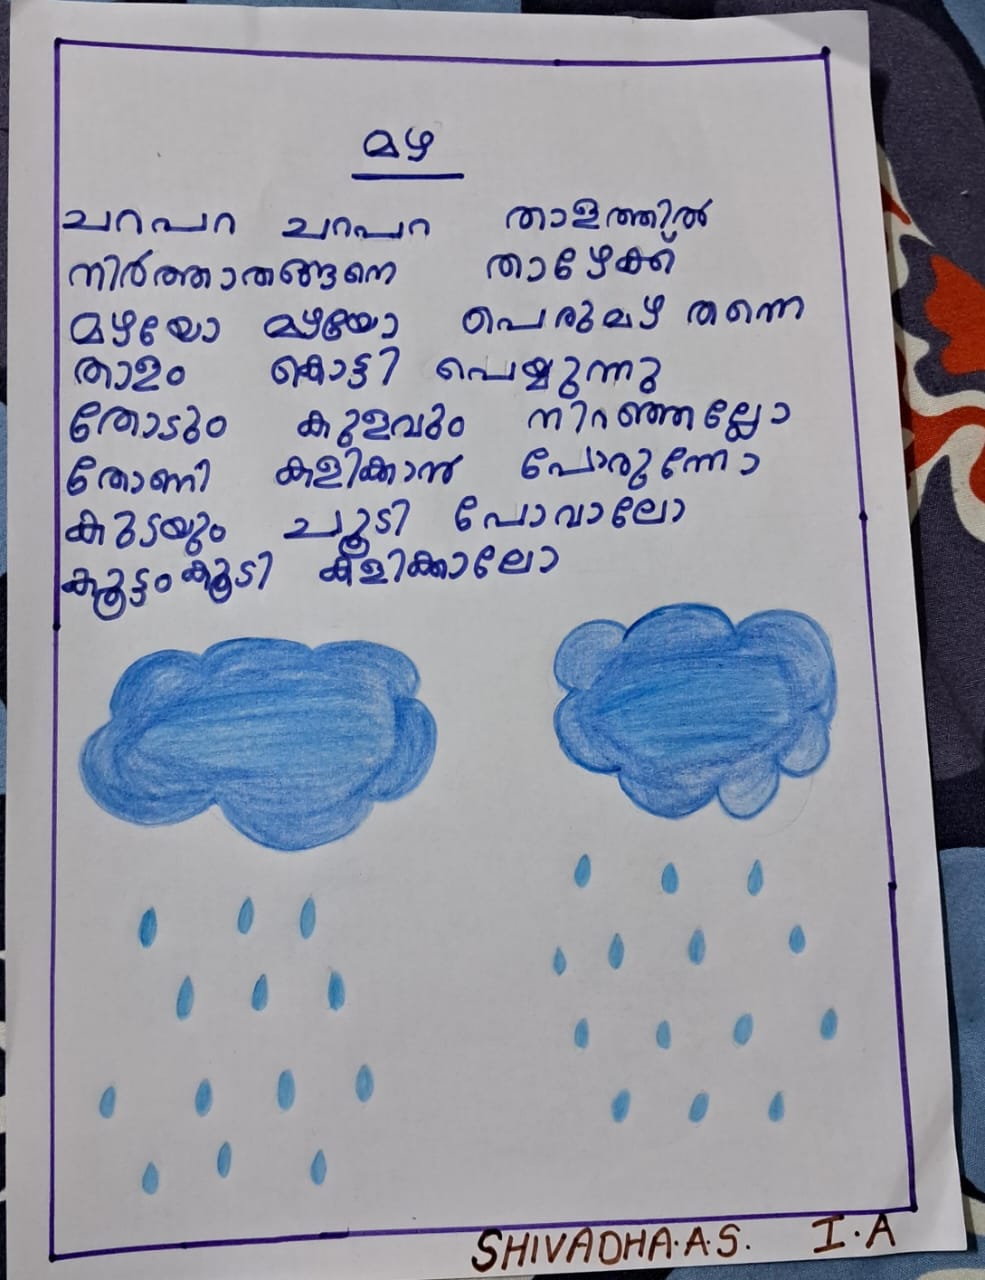 മഴ
ചറപറ ചറപറ താളത്തിൽ
നിർത്താതങ്ങനെ താഴേക്ക്
മഴയോ മഴയോ പെരുമഴ തന്നെ
താളം കൊട്ടി പെയ്യുന്നു
തോടും കുളവും നിറഞ്ഞല്ലോ
തോണി കളിക്കാൻ പോരുന്നോ
കുടയും ചൂടി പോവാലോ
കൂട്ടംകൂടി കളിക്കാലോ
SHIVADHA.A.S. I.A